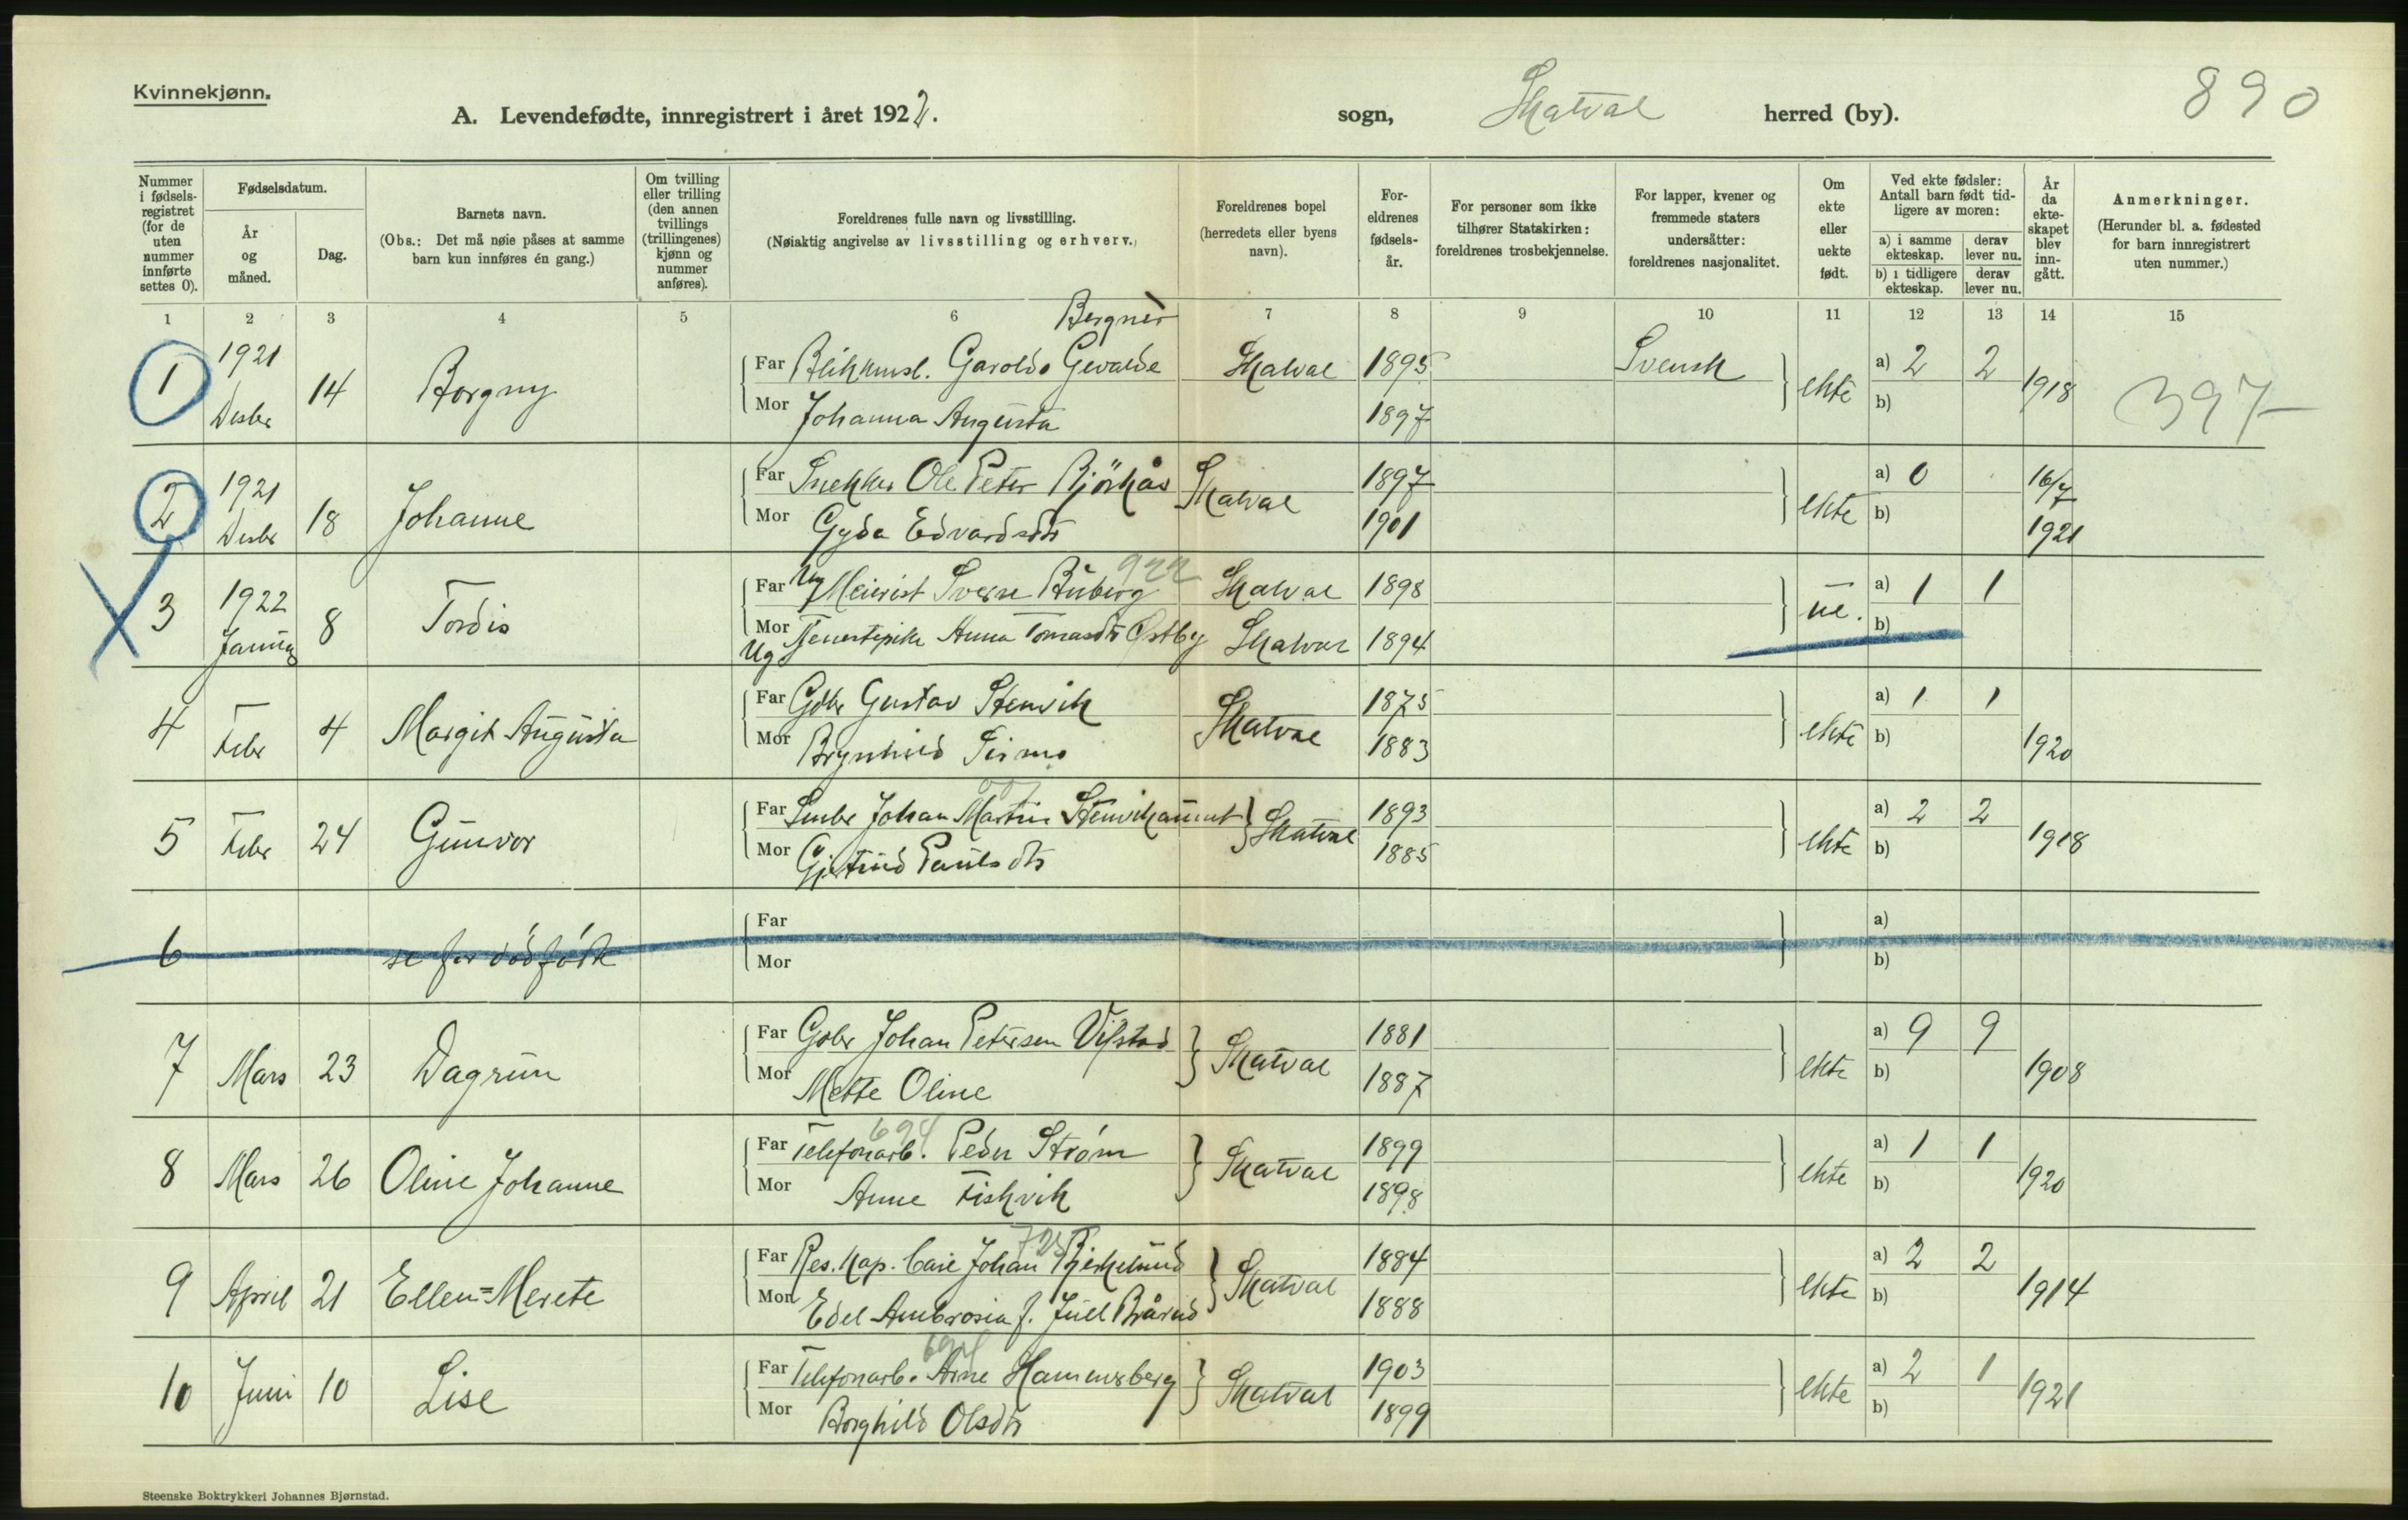 Kvinnekjønn.
A. Levendefødte, innregistrert i året 1922.
sogn, Skatval herred (by).
890
Nummer i fødselsregistret (for de uten nummer innførte settes 0).
Fødselsdatum.
År og måned.
Dag.
Barnets navn.
(Obs.: Det må nøie påses at samme barn kun innføres én gang.)
Om tvilling eller trilling (den annen tvillings (trillingenes) kjønn og nummer anføres).
Foreldrenes fulle navn og livsstilling.
(Nøiaktig angivelse av livsstilling og erhverv.)
Foreldrenes bopel (herredets eller byens navn).
Foreldrenes fødselsår.
For personer som ikke tilhører Statskirken: foreldrenes trosbekjennelse.
For lapper, kvener og fremmede staters undersåtter: foreldrenes nasjonalitet.
Om ekte eller uekte født.
Ved ekte fødsler: Antall barn født tidligere av moren:
a) i samme ekteskap. derav lever nu.
b) i tidligere ekteskap. derav lever nu.
År da ekteskapet blev inngått.
Anmerkninger.
(Herunder bl. a. fødested for barn innregistrert uten nummer.)
1 2 3 4 5 6 7 8 9 10 11 12 13 14 15
Bergner
1 1921 Desbr 14 Borgny Far Garoldo Gevalde Skatval 1895 Svensk ekte a) 2 2 1918 397
Mor Johanna Augusta 1897 b)
2 1921 Desbr 18 Johanne Far Snekker Ole Peter Björkås Skatval 1897 ekte a) 0 16/7 1921
Mor Gyda Edvardsdtr 1901 b)
922
3 1922 Januar 8 Tordis Far Ug Meierist Sverre Buberg Skatval 1898 ue. a) 1 1
Mor Ug Tjenestepike Anna Tomasdtr Østby Skatval 1894 b)
4 Febr 4 Margit Augusta Far Gbr Gustav Stenvik Skatval 1875 ekte a) 1 1 1920
Mor Brynhild 1883 b)
5 Febr 24 Gunvor Far Smbr Johan Martin Skatval 1893 ekte a) 2 2 1918
Mor Gjertrud Paulsdtr 1885 b)
6 se for dødfødte Far a)
Mor b)
7 Mars 23 Dagrun Far Gbr Johan Petersen Vifstad Skatval 1881 ekte a) 9 9 1908
Mor Mette Oline 1887 b)
694
8 Mars 26 Oline Johanne Far Telefonarb. Peder Strøm Skatval 1899 ekte a) 1 1 1920
Mor Anne Fiskvik 1898 b)
9 April 21 Ellen=Merete Far Res. kap. Johan Bjerkelund Skatval 1884 ekte a) 2 2 1914
Mor Edel Ambrosia f. Juell 1888 b)
694
10 Juni 10 Lise Far Telefonarb. Arne Hammersberg Skatval 1903 ekte a) 2 1 1921
Mor Borghild Olsdtr 1899 b)
Steenske Boktrykkeri Johannes Bjørnstad.